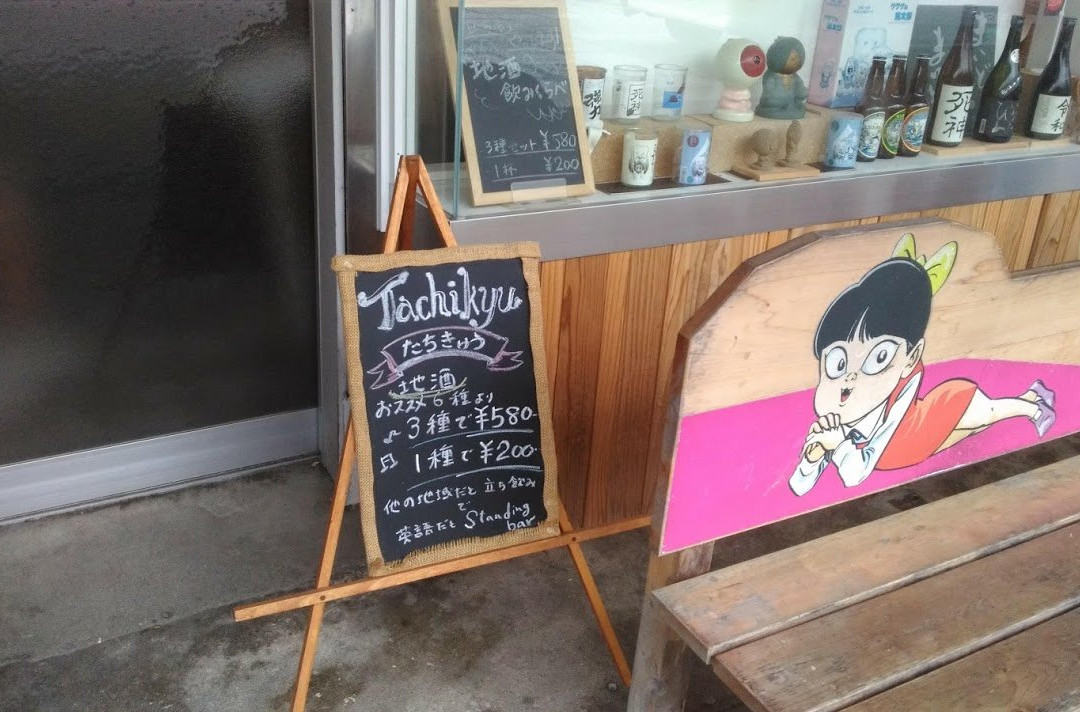 地酒
飲みくらべ
3種セット ¥580
1杯 ¥200
死神
死神
令和
Tachikyu
たちきゅう
地酒
おススメ6種より
♪3種で¥580-
♫1種で¥200-
他の地域だと立ち飲み
で
英語だとStanding
bar